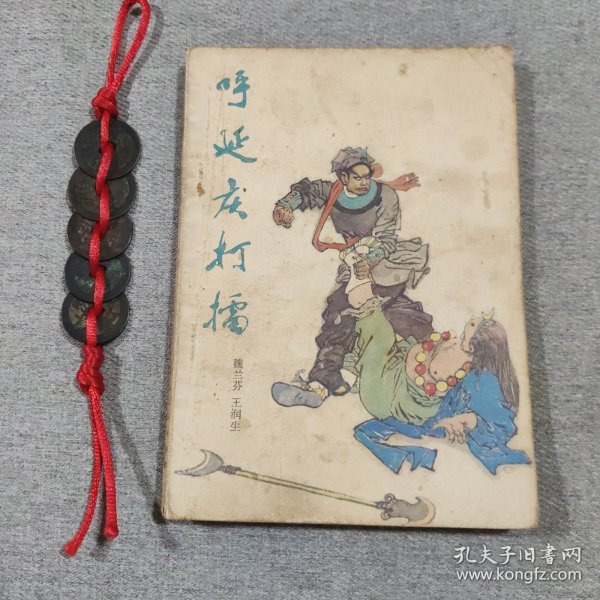 呼延庆打擂
魏兰芬 王润生
孔夫子旧书网
www.kongfz.com